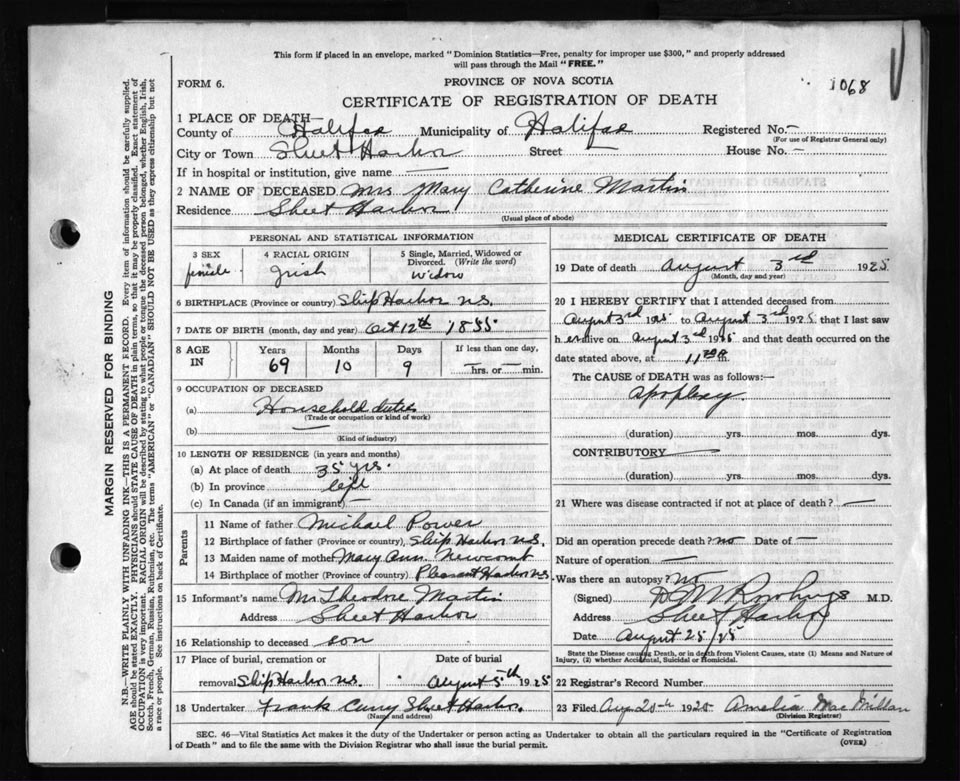 This form if placed in an envelope, marked "Dominion Statistics—Free, penalty for improper use $300," and properly addressed
will pass through the Mail "FREE."
FORM 6.
PROVINCE OF NOVA SCOTIA
1068
CERTIFICATE OF REGISTRATION OF DEATH
1 PLACE OF DEATH—
County of Halifax Municipality of Halifax Registered No. —
(For use of Registrar General only)
City or Town Sheet Harbor Street — House No. —
If in hospital or institution, give name —
2 NAME OF DECEASED Mrs Mary Catherine Martin
Residence Sheet Harbor
(Usual place of abode)
PERSONAL AND STATISTICAL INFORMATION
3 SEX 4 RACIAL ORIGIN 5 Single, Married, Widowed or
Divorced. (Write the word)
female Irish widow
6 BIRTHPLACE (Province or country) Ship Harbor N.S.
7 DATE OF BIRTH (month, day and year) Oct 12th 1855
8 AGE IN Years Months Days If less than one day,
69 10 9 hrs. or — min.
9 OCCUPATION OF DECEASED
(a) Household duties
(Trade or occupation or kind of work)
(b) —
(Kind of industry)
10 LENGTH OF RESIDENCE (in years and months)
(a) At place of death 35 yrs.
(b) In province life
(c) In Canada (if an immigrant) —
Parents
11 Name of father Michael Power
12 Birthplace of father (Province or country) Ship Harbor N.S.
13 Maiden name of mother Mary Ann Newcomb
14 Birthplace of mother (Province of country) Pleasant Harbor N.S.
15 Informant's name Mr Theodore Martin
Address Sheet Harbor
16 Relationship to deceased son
17 Place of burial, cremation or Date of burial
removal Ship Harbor N.S. August 5th 1925
18 Undertaker Frank Curry Sheet Harbor.
(Name and address)
MEDICAL CERTIFICATE OF DEATH
19 Date of death August 3rd 1925
(Month, day and year)
20 I HEREBY CERTIFY that I attended deceased from
August 3rd 1925 to August 3rd 1925 that I last saw
her alive on August 3rd 1925 and that death occurred on the
date stated above, at m.
The CAUSE of DEATH was as follows:—
Apoplexy
(duration) yrs. mos. dys.
CONTRIBUTORY —
(duration) yrs. mos. dys.
21 Where was disease contracted if not at place of death? —
Did an operation precede death? no Date of —
Nature of operation —
Was there an autopsy? No
(Signed) M.D.
Address Sheet Harbor
Date August 25/25
State the Disease causing Death, or in death from Violent Causes, state (1) Means and Nature of
Injury, (2) whether Accidental, Suicidal or Homicidal.
22 Registrar's Record Number
23 Filed Aug 25th 1925 Amelia MacMillan
(Division Registrar)
SEC. 46—Vital Statistics Act makes it the duty of the Undertaker or person acting as Undertaker to obtain all the particulars required in the "Certificate of Registration
of Death" and to file the same with the Division Registrar who shall issue the burial permit.
(OVER)
MARGIN RESERVED FOR BINDING
N.B.—WRITE PLAINLY WITH UNFADING INK—THIS IS A PERMANENT RECORD. Every item of information should be carefully supplied.
AGE should be stated EXACTLY. PHYSICIANS should STATE CAUSE OF DEATH in plain terms, so that it may be properly classified. Exact statement of
OCCUPATION is very important. RACIAL ORIGIN will be described by stating to what people or tongue the deceased person belonged, whether English, Irish,
Scotch, French, German, Russian, Ruthenian, etc. The terms "AMERICAN" or "CANADIAN" SHOULD NOT BE USED as they express citizenship but not
a race or people. See instructions on back of Certificate.